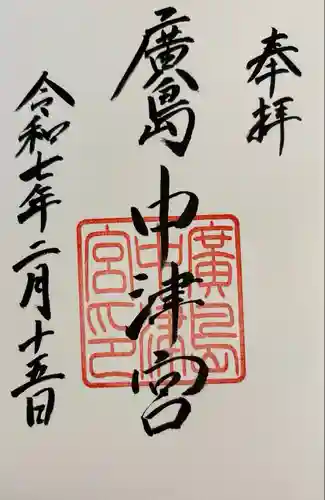 奉拝
廣島中津宮
廣島中津宮印
令和七年二月十五日